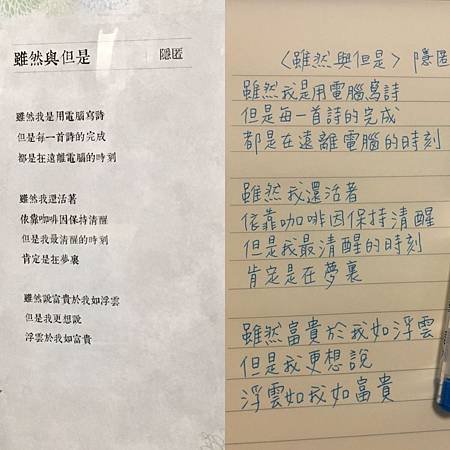 雖然與但是 隱匿
雖然我是用電腦寫詩
但是每一首詩的完成
都是在遠離電腦的時刻
雖然我還活著
依靠咖啡因保持清醒
但是我最清醒的時刻
肯定是在夢裏
雖然說富貴於我如浮雲
但是我更想說
浮雲於我如富貴
〈雖然與但是〉隱匿
雖然我是用電腦寫詩
但是每一首詩的完成
都是在遠離電腦的時刻
雖然我還活著
依靠咖啡因保持清醒
但是我最清醒的時刻
肯定是在夢裏
雖然富貴於我如浮雲
但是我更想說
浮雲如我如富貴